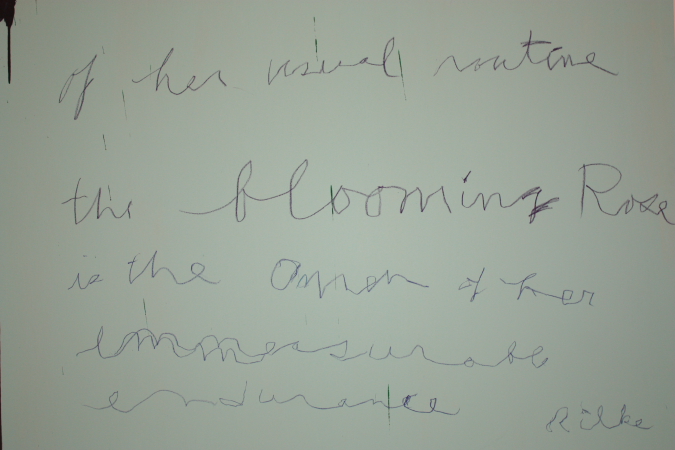 of her usual routine
the blooming Rose
is the Omen of her
immeasurable
endurance
Rilke